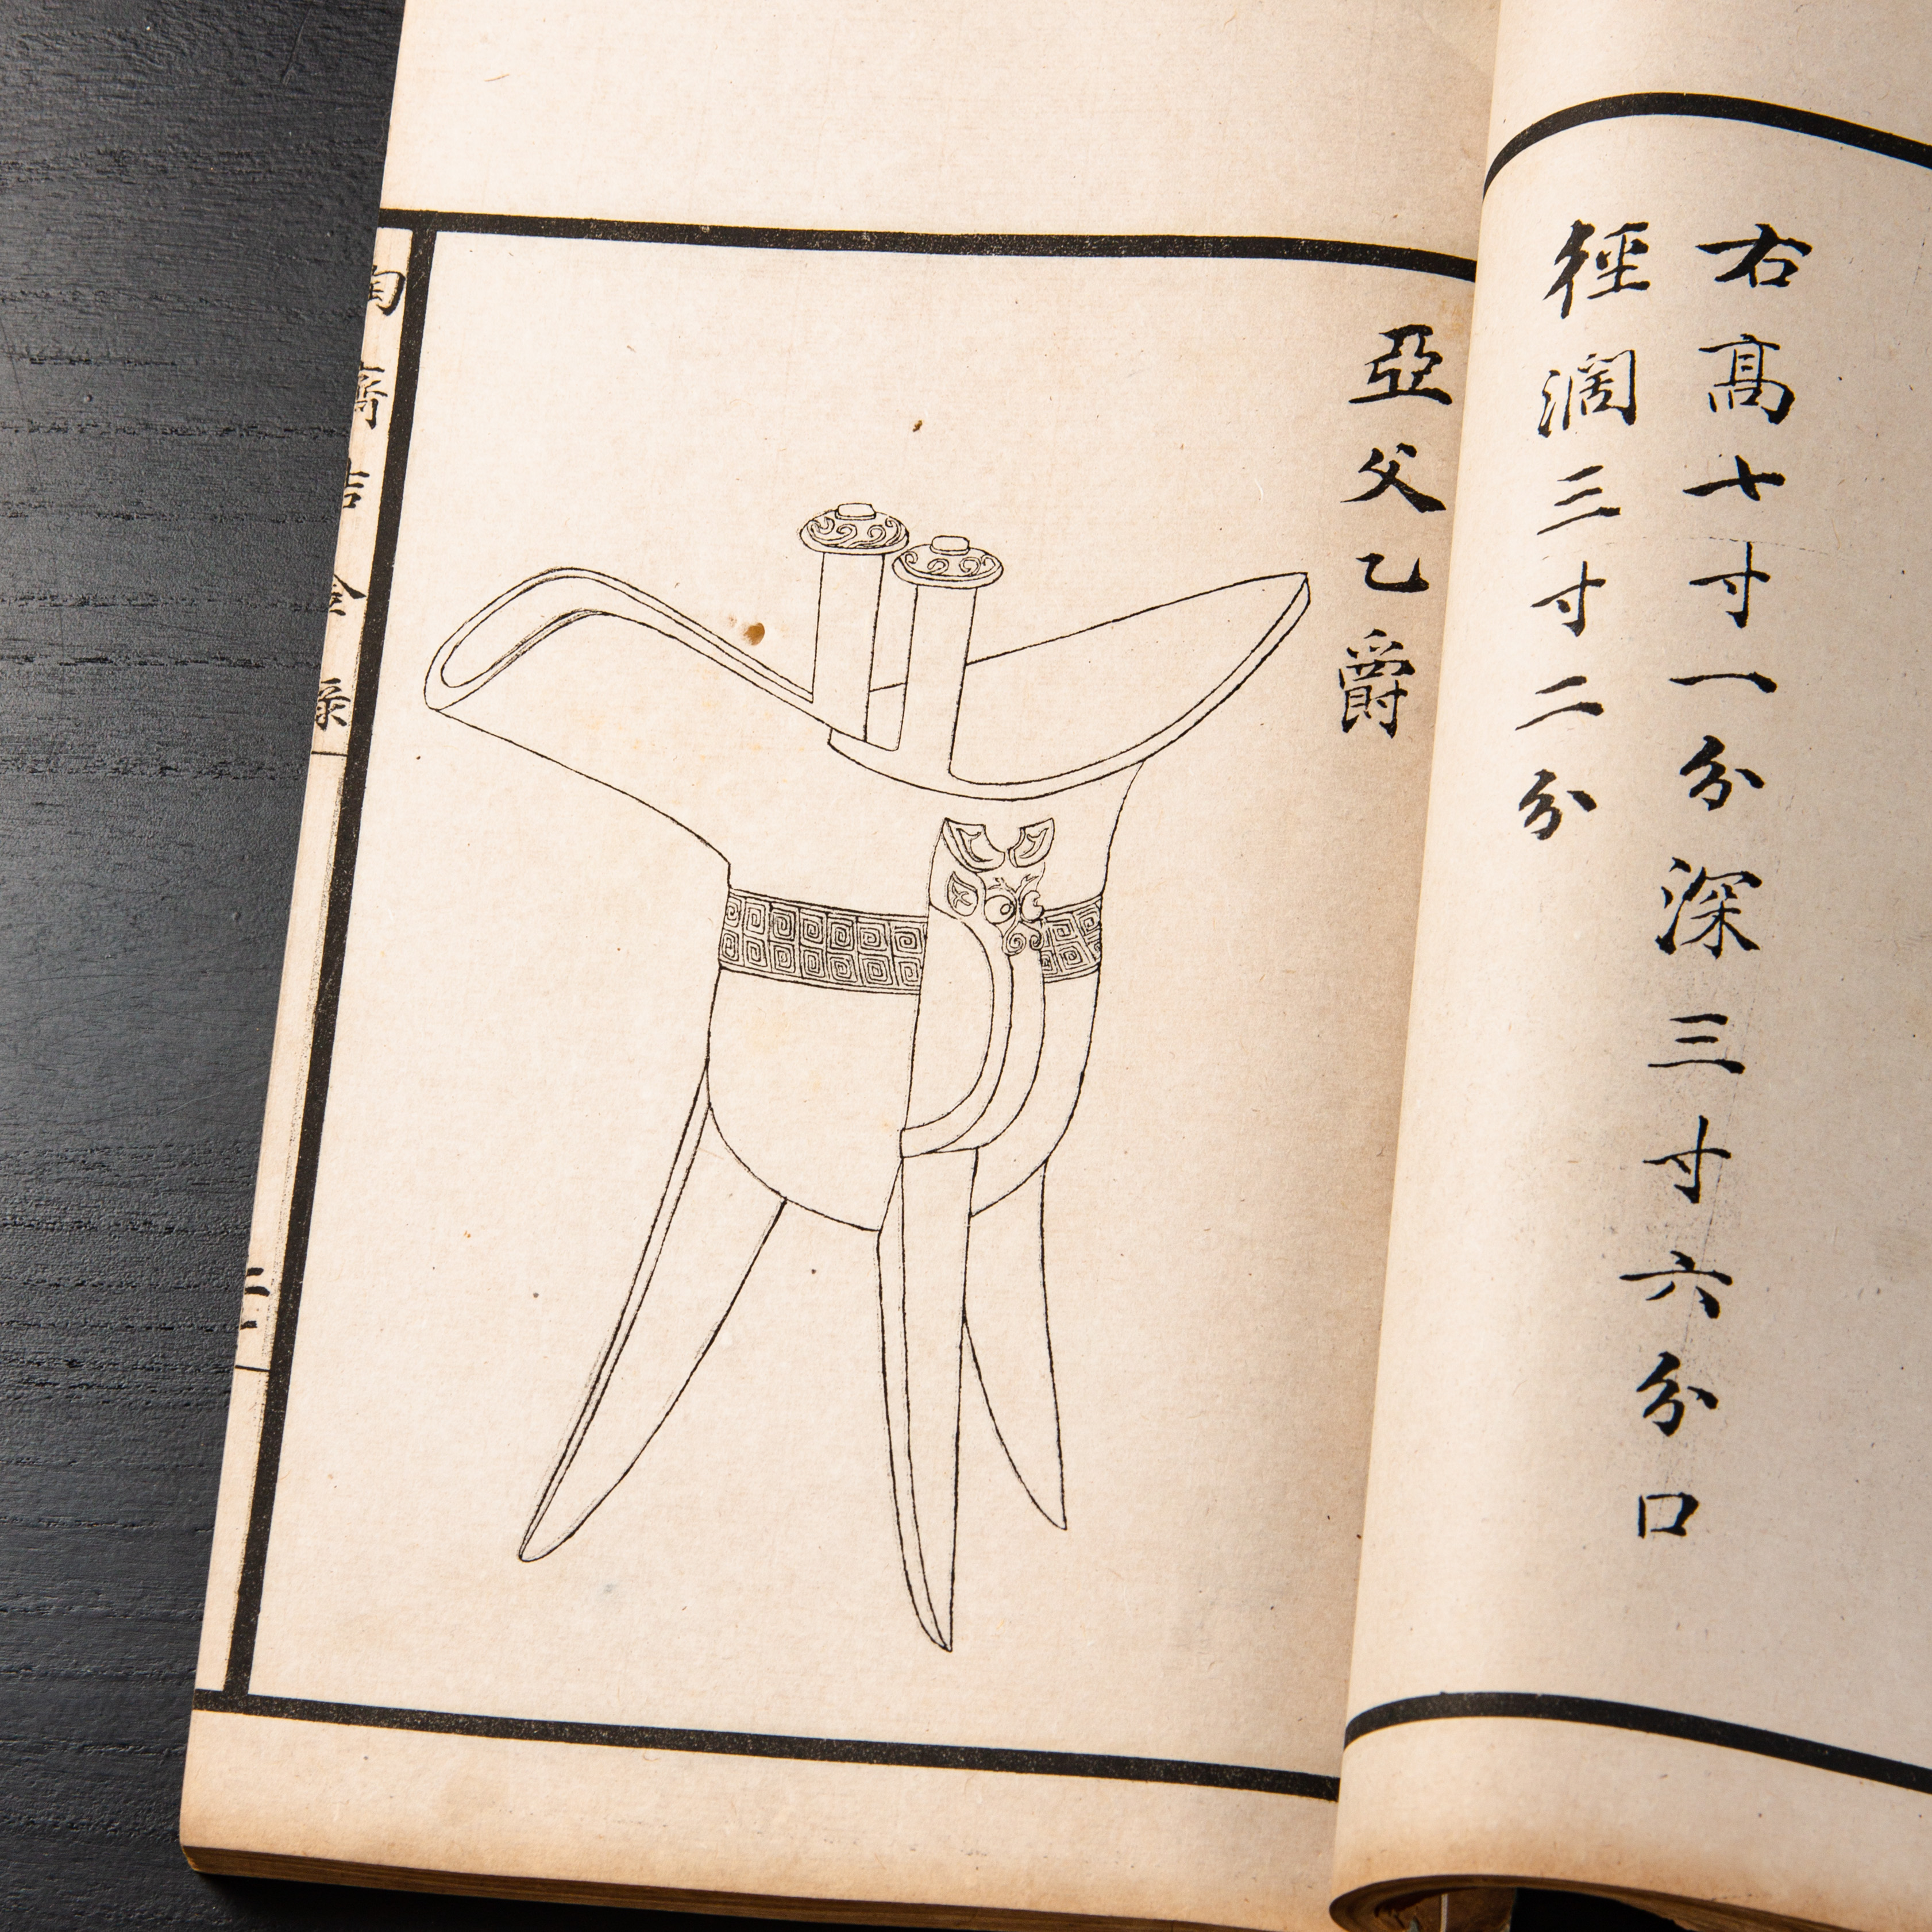 右高七寸一分深三寸六分口
徑濶三寸二分
亞父乙爵
陶齋吉金录
二